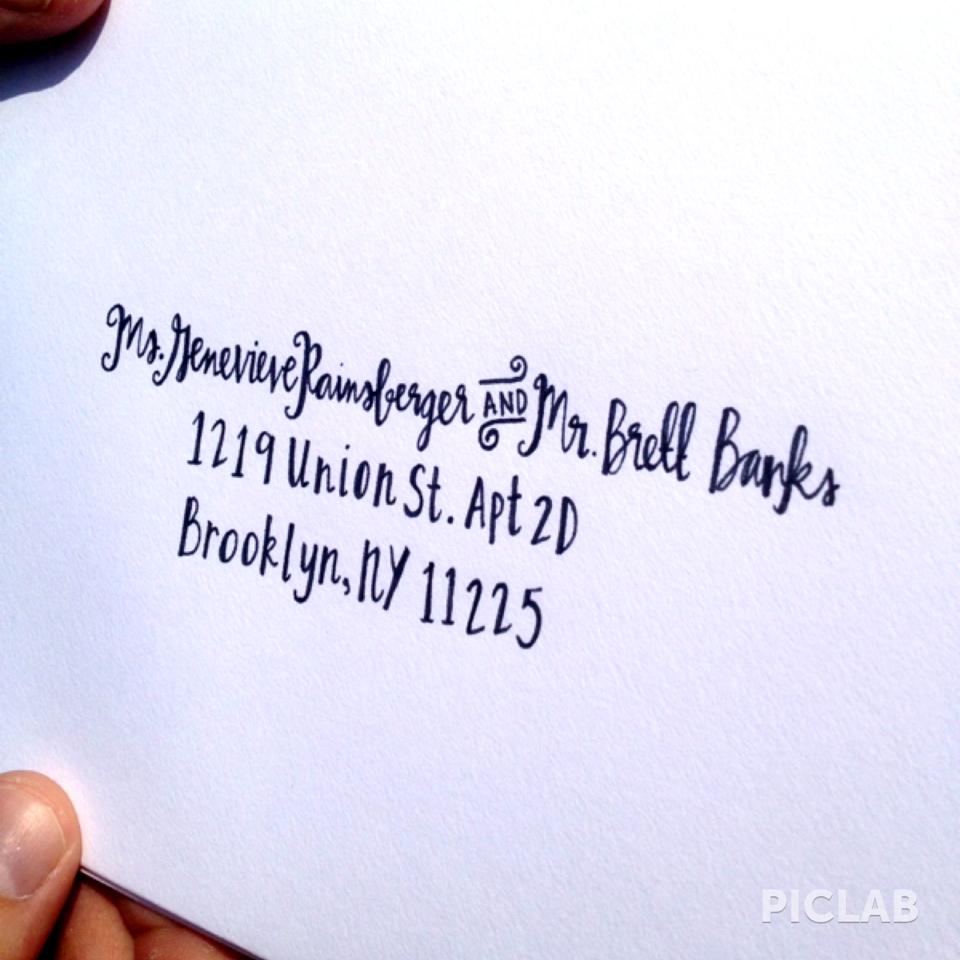 Ms. Genevieve Rainsberger AND Mr. Brett Banks
1219 Union St. Apt 2D
Brooklyn, NY 11225
PICLAB